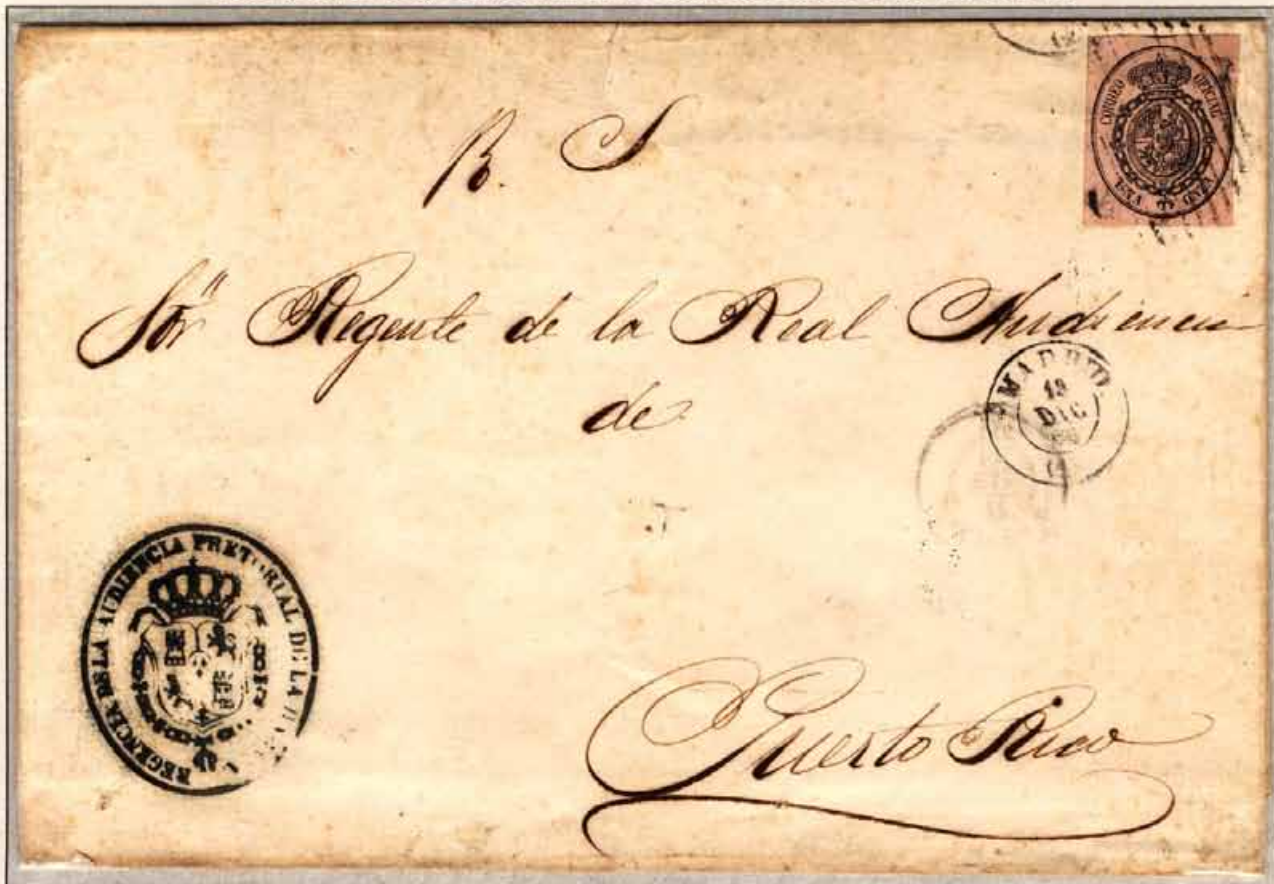 CORREO OFICIAL
UNA ONZA
R. S
Sor Regente de la Real Audiencia
de
MADRID
DIC
REGENCIA DE LA AUDIENCIA PRETORIAL DE LA
Puerto Rico